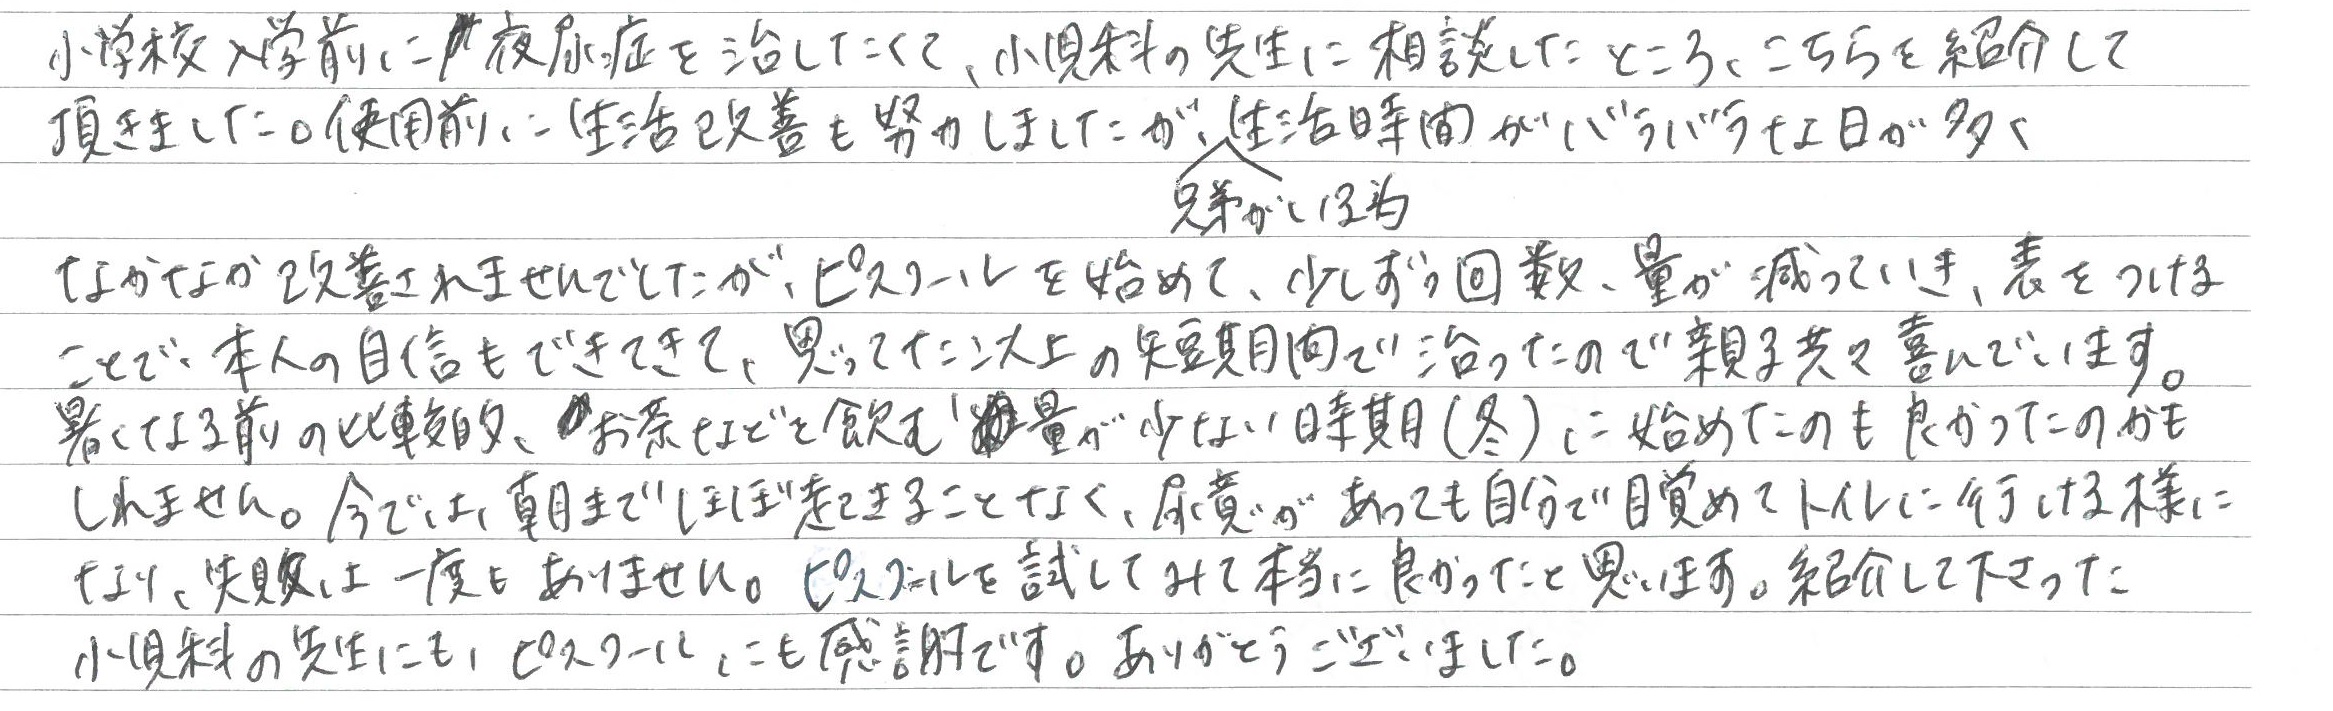 小学校入学前に夜尿症を治したくて、小児科の先生に相談したところ、こちらを紹介して
頂きました。使用前に生活改善も努力しましたが、生活時間がバラバラな日が多く
兄弟がいる為
なかなか改善されませんでしたが、ピスクールを始めて、少しずつ回数、量が減っていき、表をつける
ことで、本人の自信もできてきて、思ってた以上の短期間で治ったので親子共々喜んでいます。
暑くなる前の比較的、お茶などを飲む量が少ない時期(冬)に始めたのも良かったのかも
しれません。今では、朝までほぼ起きることなく、尿意があっても自分で目覚めてトイレに行ける様に
なり、失敗は一度もありません。ピスクールを試してみて本当に良かったと思います。紹介して下さった
小児科の先生にも、ピスクールにも感謝です。ありがとうございました。